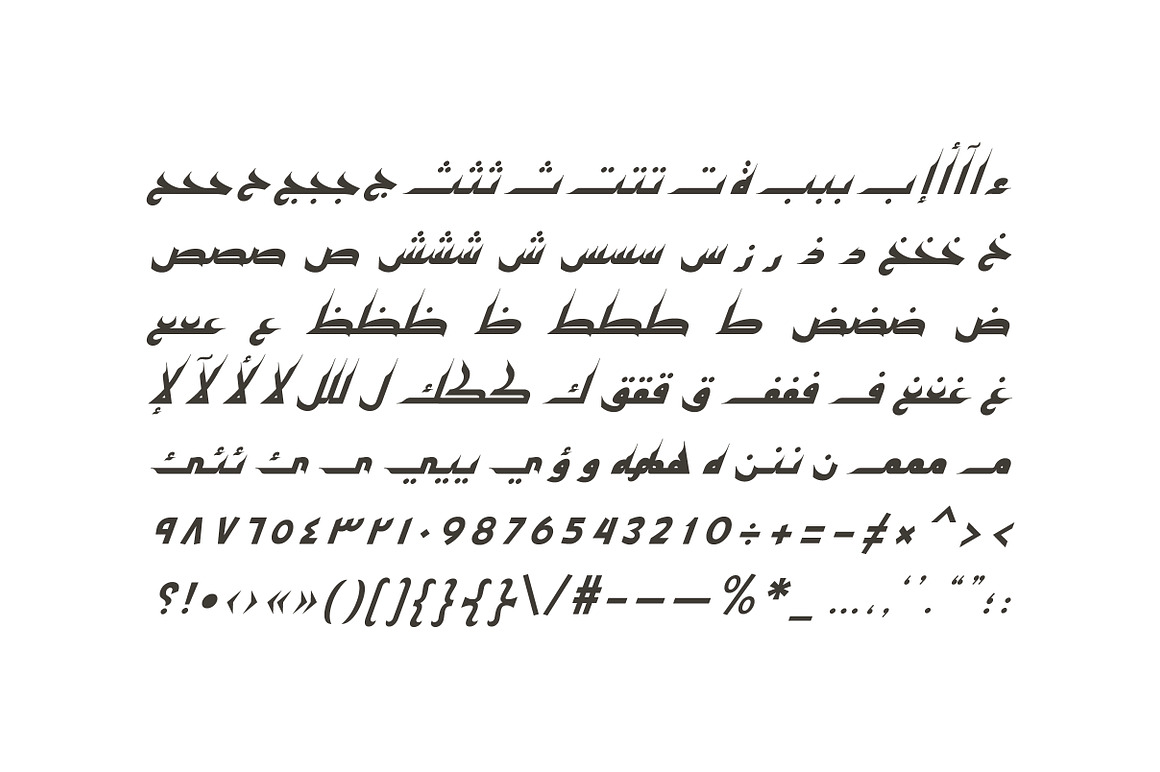 ء ا آ أ إ ب ببب ة ت تتت ث ثثث ج ججج ح ححح
خ خخخ د ذ ر ز س سسس ش ششش ص صصص
ض ضضض ط ططط ظ ظظظ ع ععع
غ غغغ ف ففف ق ققق ك ككك ل للل لا لأ لآ لإ
م ممم ن ننن ه ههه و ؤ ي ييي ى ئ ئئئ
٩ ٨ ٧ ٦ ٥ ٤ ٣ ٢ ١ ٠ 9 8 7 6 5 4 3 2 1 0 ÷ + = - ≠ × ^ > <
؟ ! • ‹ › « » ( ) [ ] { } { } \ / # - – — % * _ … ، , ‘ ’ . “ ” ؛ :